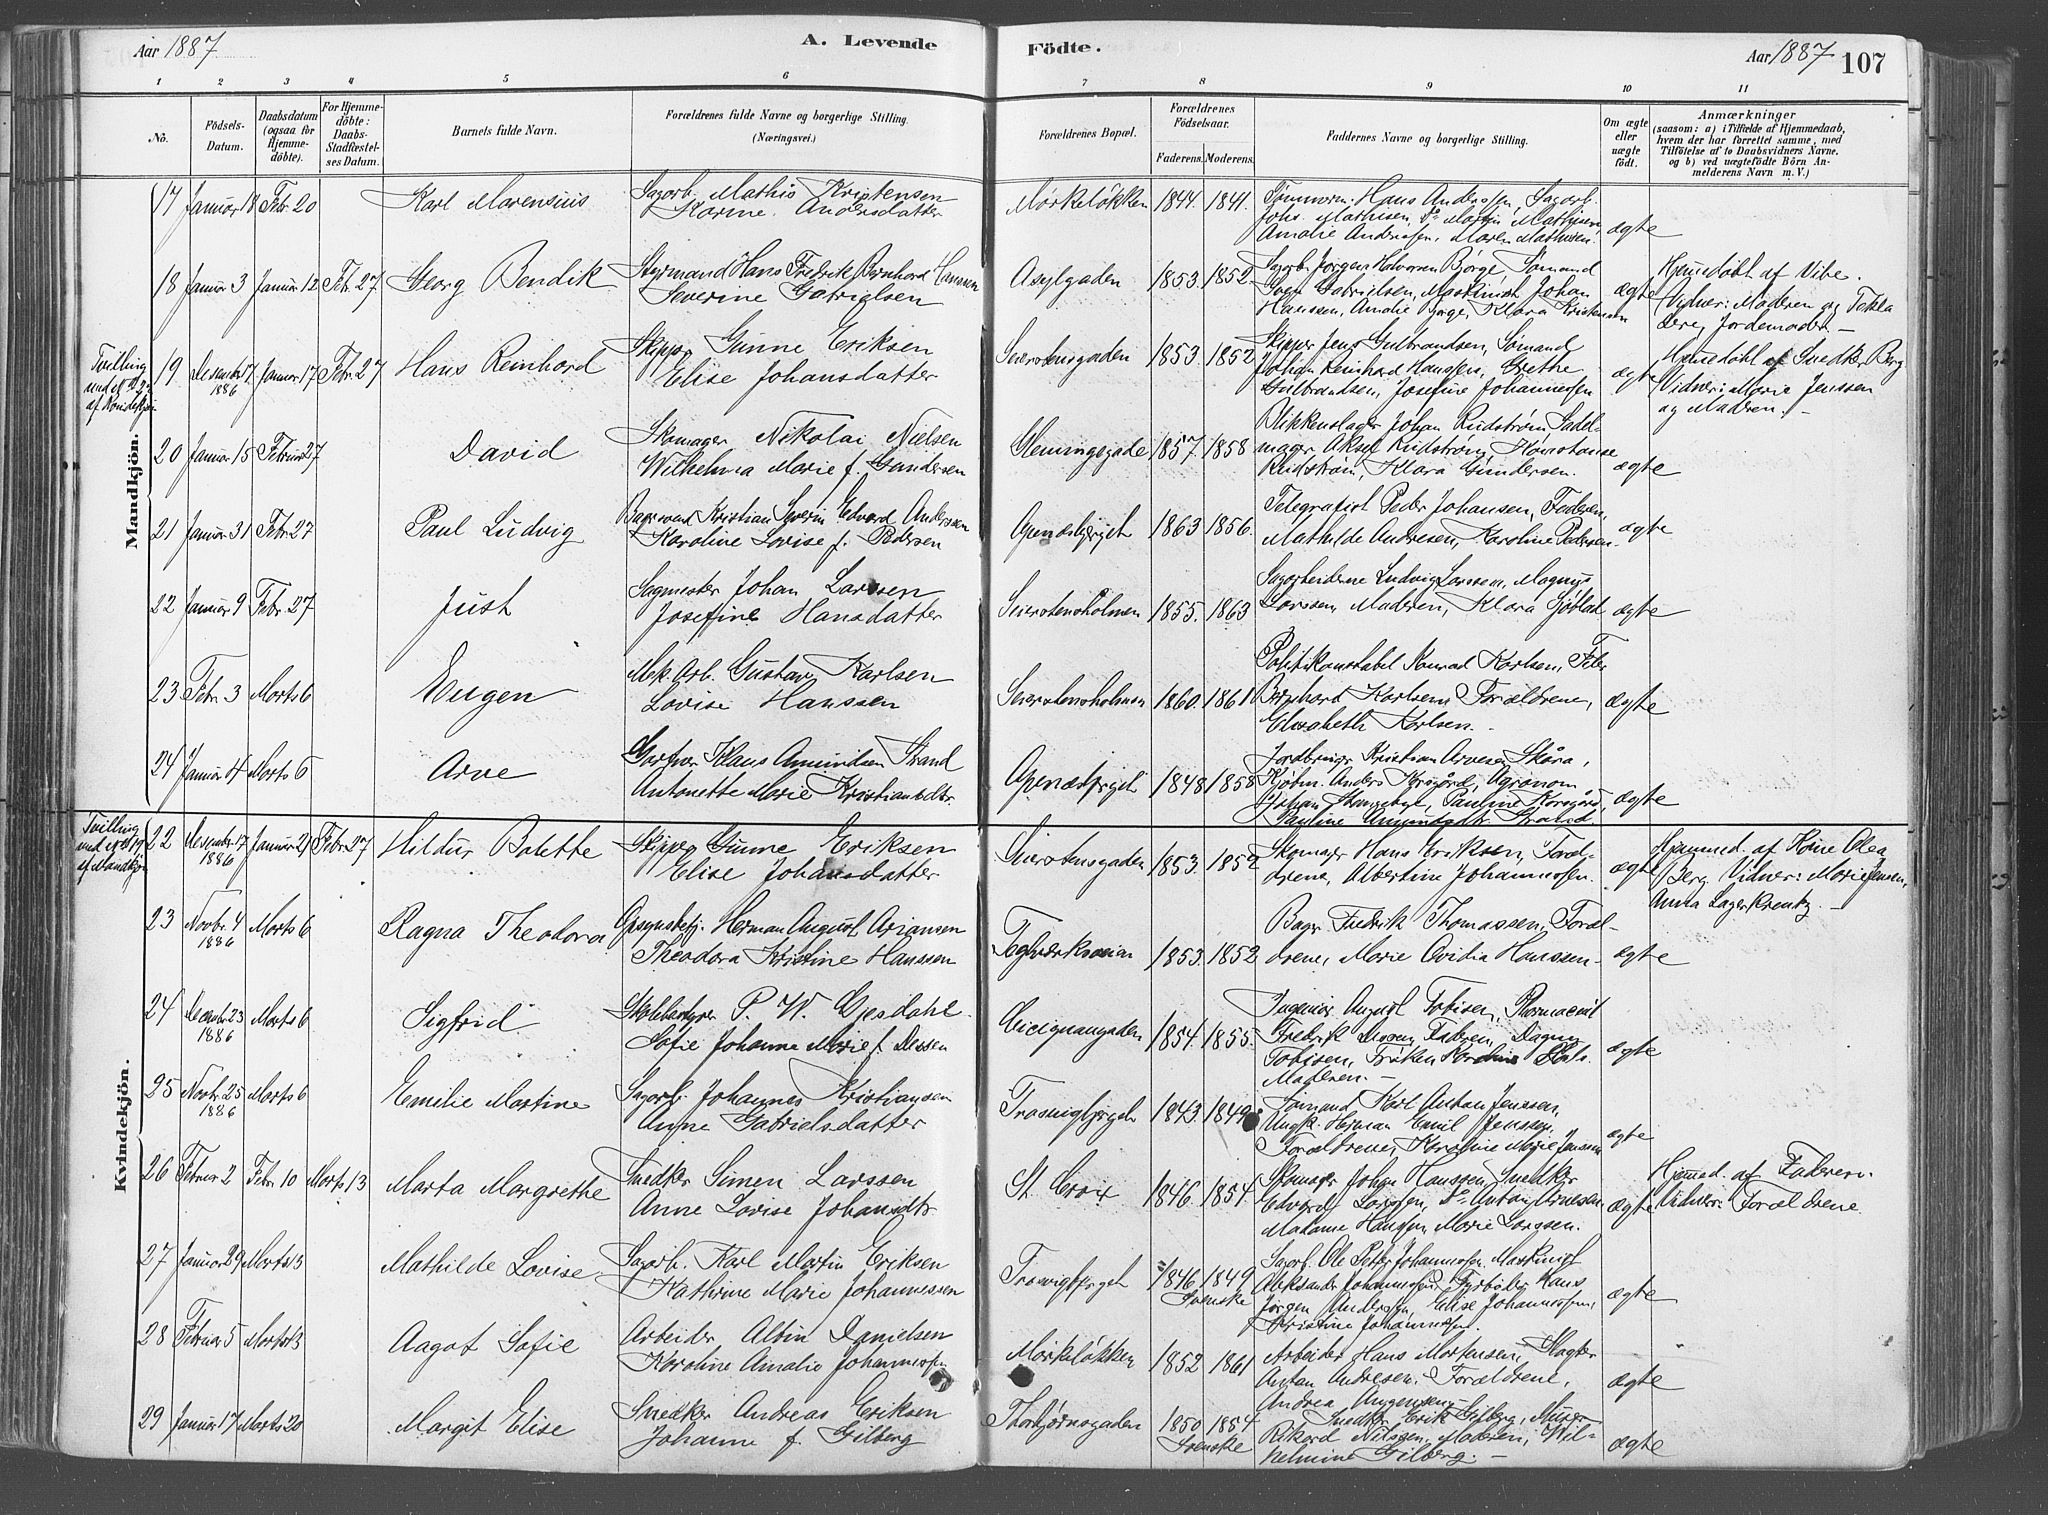 Aar 1887
A. Levende
Födte.
Aar 1887
107
1 2 3 4 5 6 7 8 9 10 11
No.
Födsels-Datum.
Daabsdatum (ogsaa för Hjemmedöbte).
For Hjemmedöbte: Daabs-Stadfæstelses Datum.
Barnets fulde Navn.
Forældrenes fulde Navne og borgerlige Stilling.
(Næringsvei.)
Forældrenes Bopæl.
Forældrenes Födselsaar.
Faderens. Moderens.
Faddernes Navne og borgerlige Stilling.
Om ægte eller uægte födt.
Anmærkninger
(saasom: a) i Tilfælde af Hjemmedaab,
hvem der har forrettet samme, med
Tilföielse af to Daabsvidners Navne,
og b) ved uægtefödte Börn Anmelderens Navn m. V.)
Mandkjön.
17 Januar 18 Febr. 20 Karl Marensius
Sagarb. Mathis Kristensen
Karine Andersdatter
Mørkeløkken 1844. 1841.
Tømmerm. Hans Anderssen, Sagarb.
Johs. Mathisen, Do Martin Mathisen,
Amalie Andersen, Maren Mathisen.
ægte
18 Januar 3 Januar 12 Febr. 27 Georg Bendik
Styrmand Hans Fredrik Bernhard Hanssen
Severine Gabrielsen
Asylgaden 1853. 1852
Sagarb. Jørgen Halvorsen Bjørge, Sømand
Sven Gabrielsen, Maskinist Johan
Hanssen, Amalie Bjørge, Klara Kristensen
ægte
Hjemdøbt af Vibe.
Vidner: Moderen og Tekla
Jordemoder.
Tvilling med No 22 af Kvindekjøn
19 Desember 17 1886 Januar 17 Febr. 27 Hans Reinhard
Skipper Gunne Eriksen
Elise Johansdatter
Sverstensgaden 1853 1852
Skipper Jens Gulbrandsen, Sømand
Johan Reinhard Hanssen, Grethe
Gulbrandsen, Josefine Johannessen
ægte
Hjemedøbt af Snedk. Berg
Vidner: Marie Jenssen
og Moderen.
20 Januar 15 Februar 27 David
Skomager Nikolai Nielsen
Wilhelmia Marie f. Gundersen
Glemingegade 1857. 1858
Blikkenslager Johan Rudstrøm, Sadelmager
Aksel Rudstrøm, Konstanse
Rudstrøm, Klara Gundersen.
ægte
21 Januar 31 Febr. 27 Paul Ludvig
Bagersvend Kristian Severin Edvard Anderssen
Karoline Lovise f. Pedersen
Apenæsbjerget 1863 1856.
Telegrafist Peder Johansen, Faderen,
Mathilde Andresen, Karoline Pedersen.
ægte
22 Januar 9 Febr. 27 Just
Sagmester Johan Larssen
Josefine Hansdatter
1855. 1863
Sagarbeiderne Ludvig Larssen, Magnus
Larssen, Moderen, Klara Sjøblad
ægte
23 Febr. 3 Marts 6 Eugen
Mek. Arb. Gustav Karlsen
Lovise Hanssen
1860. 1861
Politikonstabel Konrad Karlsen,
Bernhard Karlsen, Forældrene,
Elisabeth Karlsen.
ægte
24 Januar 4 Marts 6 Arve
Garver Klaus Amundsen Strand
Antonette Marie Kristiansdtr
Apenæsbjerget 1848 1858
Jordbruger Kristian Arvesen Skåra,
Kjøbm. Anders Korsgård, Agronom
Johan, Pauline Korsgård,
Pauline Amundsdtr Strand
ægte
Kvindekjön.
Tvilling med No 19 af Mandkjøn
22 Desember 17 1886 Januar 21 Febr. 27 Hildur Bolette
Skipper Gunne Eriksen
Elise Johansdatter
1853. 1852
Skomager Hans Eriksen, Forældrene,
Albertine Johannessen.
ægte
Hjemmed. af Kone Olea
Berg. Vidner: Marie Jensen,
Anna Lagerkrentz.
23 Novbr. 4 1886 Marts 6 Ragna Theodora
Opsynsbetj. Herman August Ariansen
Theodora Kristine Hanssen
Teglværksveien 1853. 1852
Bager Fredrik Thomassen, Forældrene,
Marie Ovidia Hanssen
ægte
24 December 23 1886 Marts 6 Sigfrid
Skolebestyrer P. W. Gjesdahl
Sofie Johanne Marie f. Dessen
Cicignongaden 1854. 1855.
Ingeniør August Tobisen, Pharmaceut
Fredrik, Faderen, Dagny
Tobisen, Frøken Karoline
Moderen.
ægte
25 Novbr. 25 1886 Marts 6 Emilie Martine
Sagarb. Johannes Kristiansen
Anne Gabrielsdatter
Trosvigbjerget 1843. 1849.
Sømand Karl Anton Jenssen,
Ungk. Herman Emil Jenssen,
Forældrene, Karoline Marie Jenssen
ægte
26 Februar 2 Febr. 10 Marts 13 Marta Margrethe
Snedker Simen Larssen
Anne Lovise Johansdtr
St. Croix 1846. 1854
Skomager Johan Hanssen, Snedker
Edvard Larssen, Do Anton Arnesen
Madame Hanssen, Marie Larssen.
ægte
Hjemmed. af Faderen.
Vidner: Forældrene
27 Januar 29 Marts 13 Mathilde Lovise
Sagarb. Karl Martin Eriksen
Kathrine Marie Johannessen
Trosvigbjerget 1846 1849
Svenske
Sagarb. Ole Petter Johannessen, Maskinist
Aleksander Johannessen, Fyrbøder Hans
Jørgen Anderssen, Elise Johannessen,
Kristine Johannessen.
ægte
28 Februar 5 Marts 13 Aagot Sofie
Arbeider Albin Danielsen
Karoline Amalie Johannessen
Mørkeløkken 1852 1861
Arbeider Hans Mortensen, Slagter
Anton Andresen, Forældrene,
Andrea
ægte
29 Januar 17 Marts 20 Margit Elise
Snedker Andreas Eriksen
Johanne f. Gilberg
Thorbjørnsgaden 1850 1854
Svenske
Snedker Erik Gilberg, Murer
Rikard Nilssen, Moderen, Wilhelmine
Gilberg.
ægte